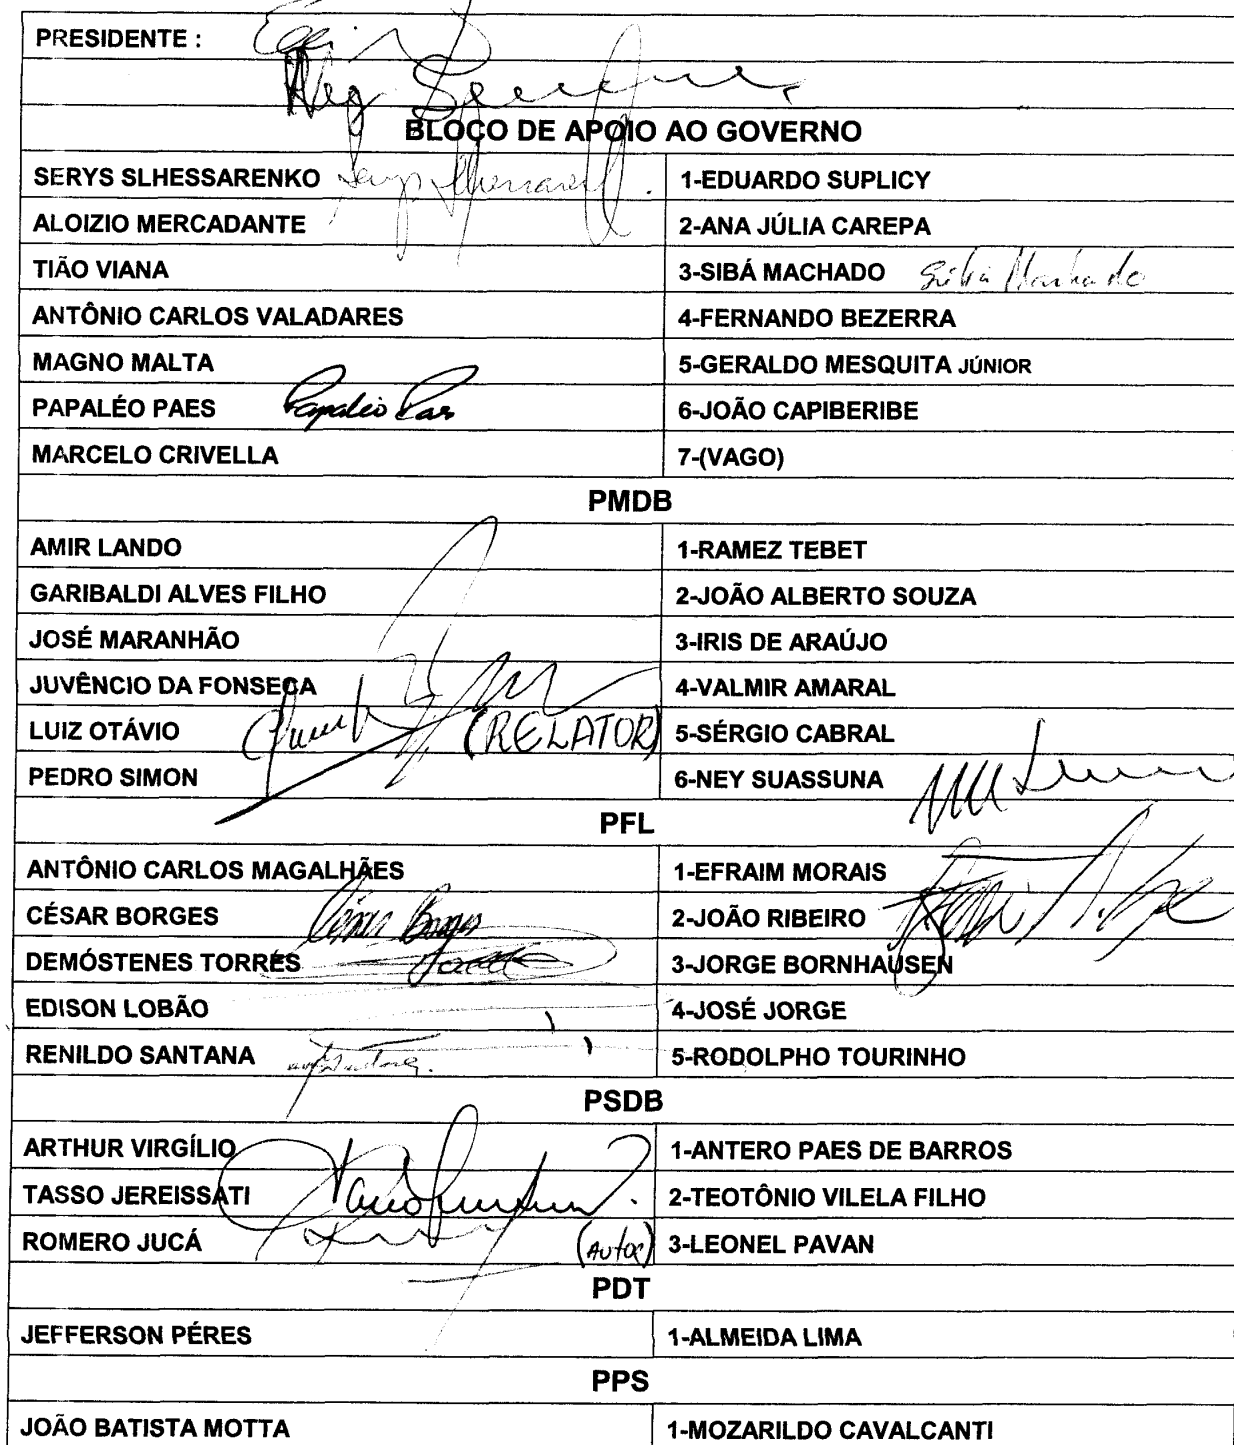 PRESIDENTE :
BLOCO DE APOIO AO GOVERNO
SERYS SLHESSARENKO 1-EDUARDO SUPLICY
ALOIZIO MERCADANTE 2-ANA JÚLIA CAREPA
TIÃO VIANA 3-SIBÁ MACHADO Sibá Machado
ANTÔNIO CARLOS VALADARES 4-FERNANDO BEZERRA
MAGNO MALTA 5-GERALDO MESQUITA JÚNIOR
PAPALÉO PAES Papaléo Paes 6-JOÃO CAPIBERIBE
MARCELO CRIVELLA 7-(VAGO)
PMDB
AMIR LANDO 1-RAMEZ TEBET
GARIBALDI ALVES FILHO 2-JOÃO ALBERTO SOUZA
JOSÉ MARANHÃO 3-IRIS DE ARAÚJO
JUVÊNCIO DA FONSECA 4-VALMIR AMARAL
LUIZ OTÁVIO (RELATOR) 5-SÉRGIO CABRAL
PEDRO SIMON 6-NEY SUASSUNA
PFL
ANTÔNIO CARLOS MAGALHÃES 1-EFRAIM MORAIS
CÉSAR BORGES César Borges 2-JOÃO RIBEIRO
DEMÓSTENES TORRES 3-JORGE BORNHAUSEN
EDISON LOBÃO 4-JOSÉ JORGE
RENILDO SANTANA 5-RODOLPHO TOURINHO
PSDB
ARTHUR VIRGÍLIO 1-ANTERO PAES DE BARROS
TASSO JEREISSATI 2-TEOTÔNIO VILELA FILHO
ROMERO JUCÁ (Autor) 3-LEONEL PAVAN
PDT
JEFFERSON PÉRES 1-ALMEIDA LIMA
PPS
JOÃO BATISTA MOTTA 1-MOZARILDO CAVALCANTI